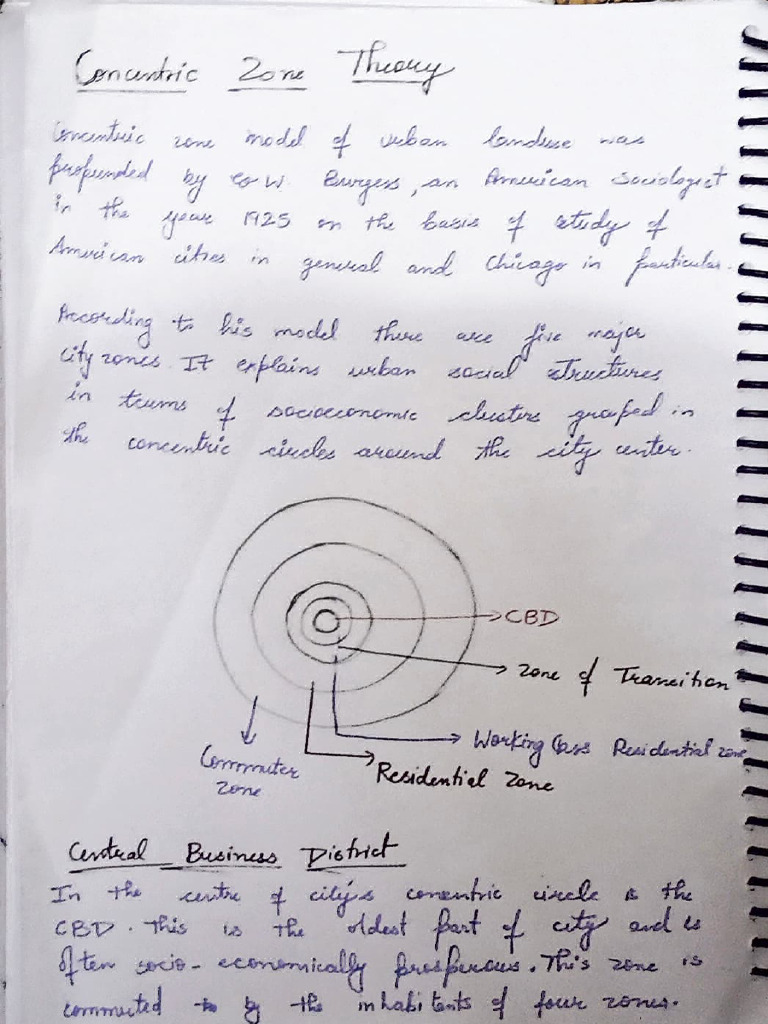 Concentric Zone Theory
Concentric zone model of urban landuse was
propunded by E.W. Burgess, an American Sociologist
in the year 1925 on the basis of study of
American cities in general and Chicago in particular.
According to his model there are five major
city zones. It explains urban social structures
in terms of socioeconomic clusters grouped in
the concentric circles around the city center.
CBD
Zone of Transition
Working Class Residential zone
Residential Zone
Commuter
zone
Central Business District
In the centre of city's concentric circle is the
CBD. This is the oldest part of city and is
often socio-economically prosperous. This zone is
commuted by the inhabitents of four zones.